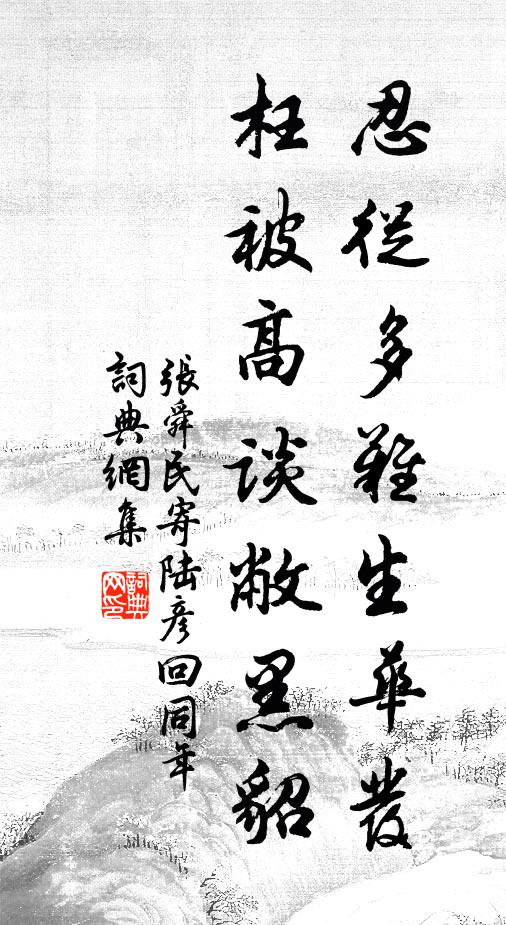 忍從多難生華發
枉被高談敝黑貂
張舜民寄陸彦回同年
詞典網集
詞典網印